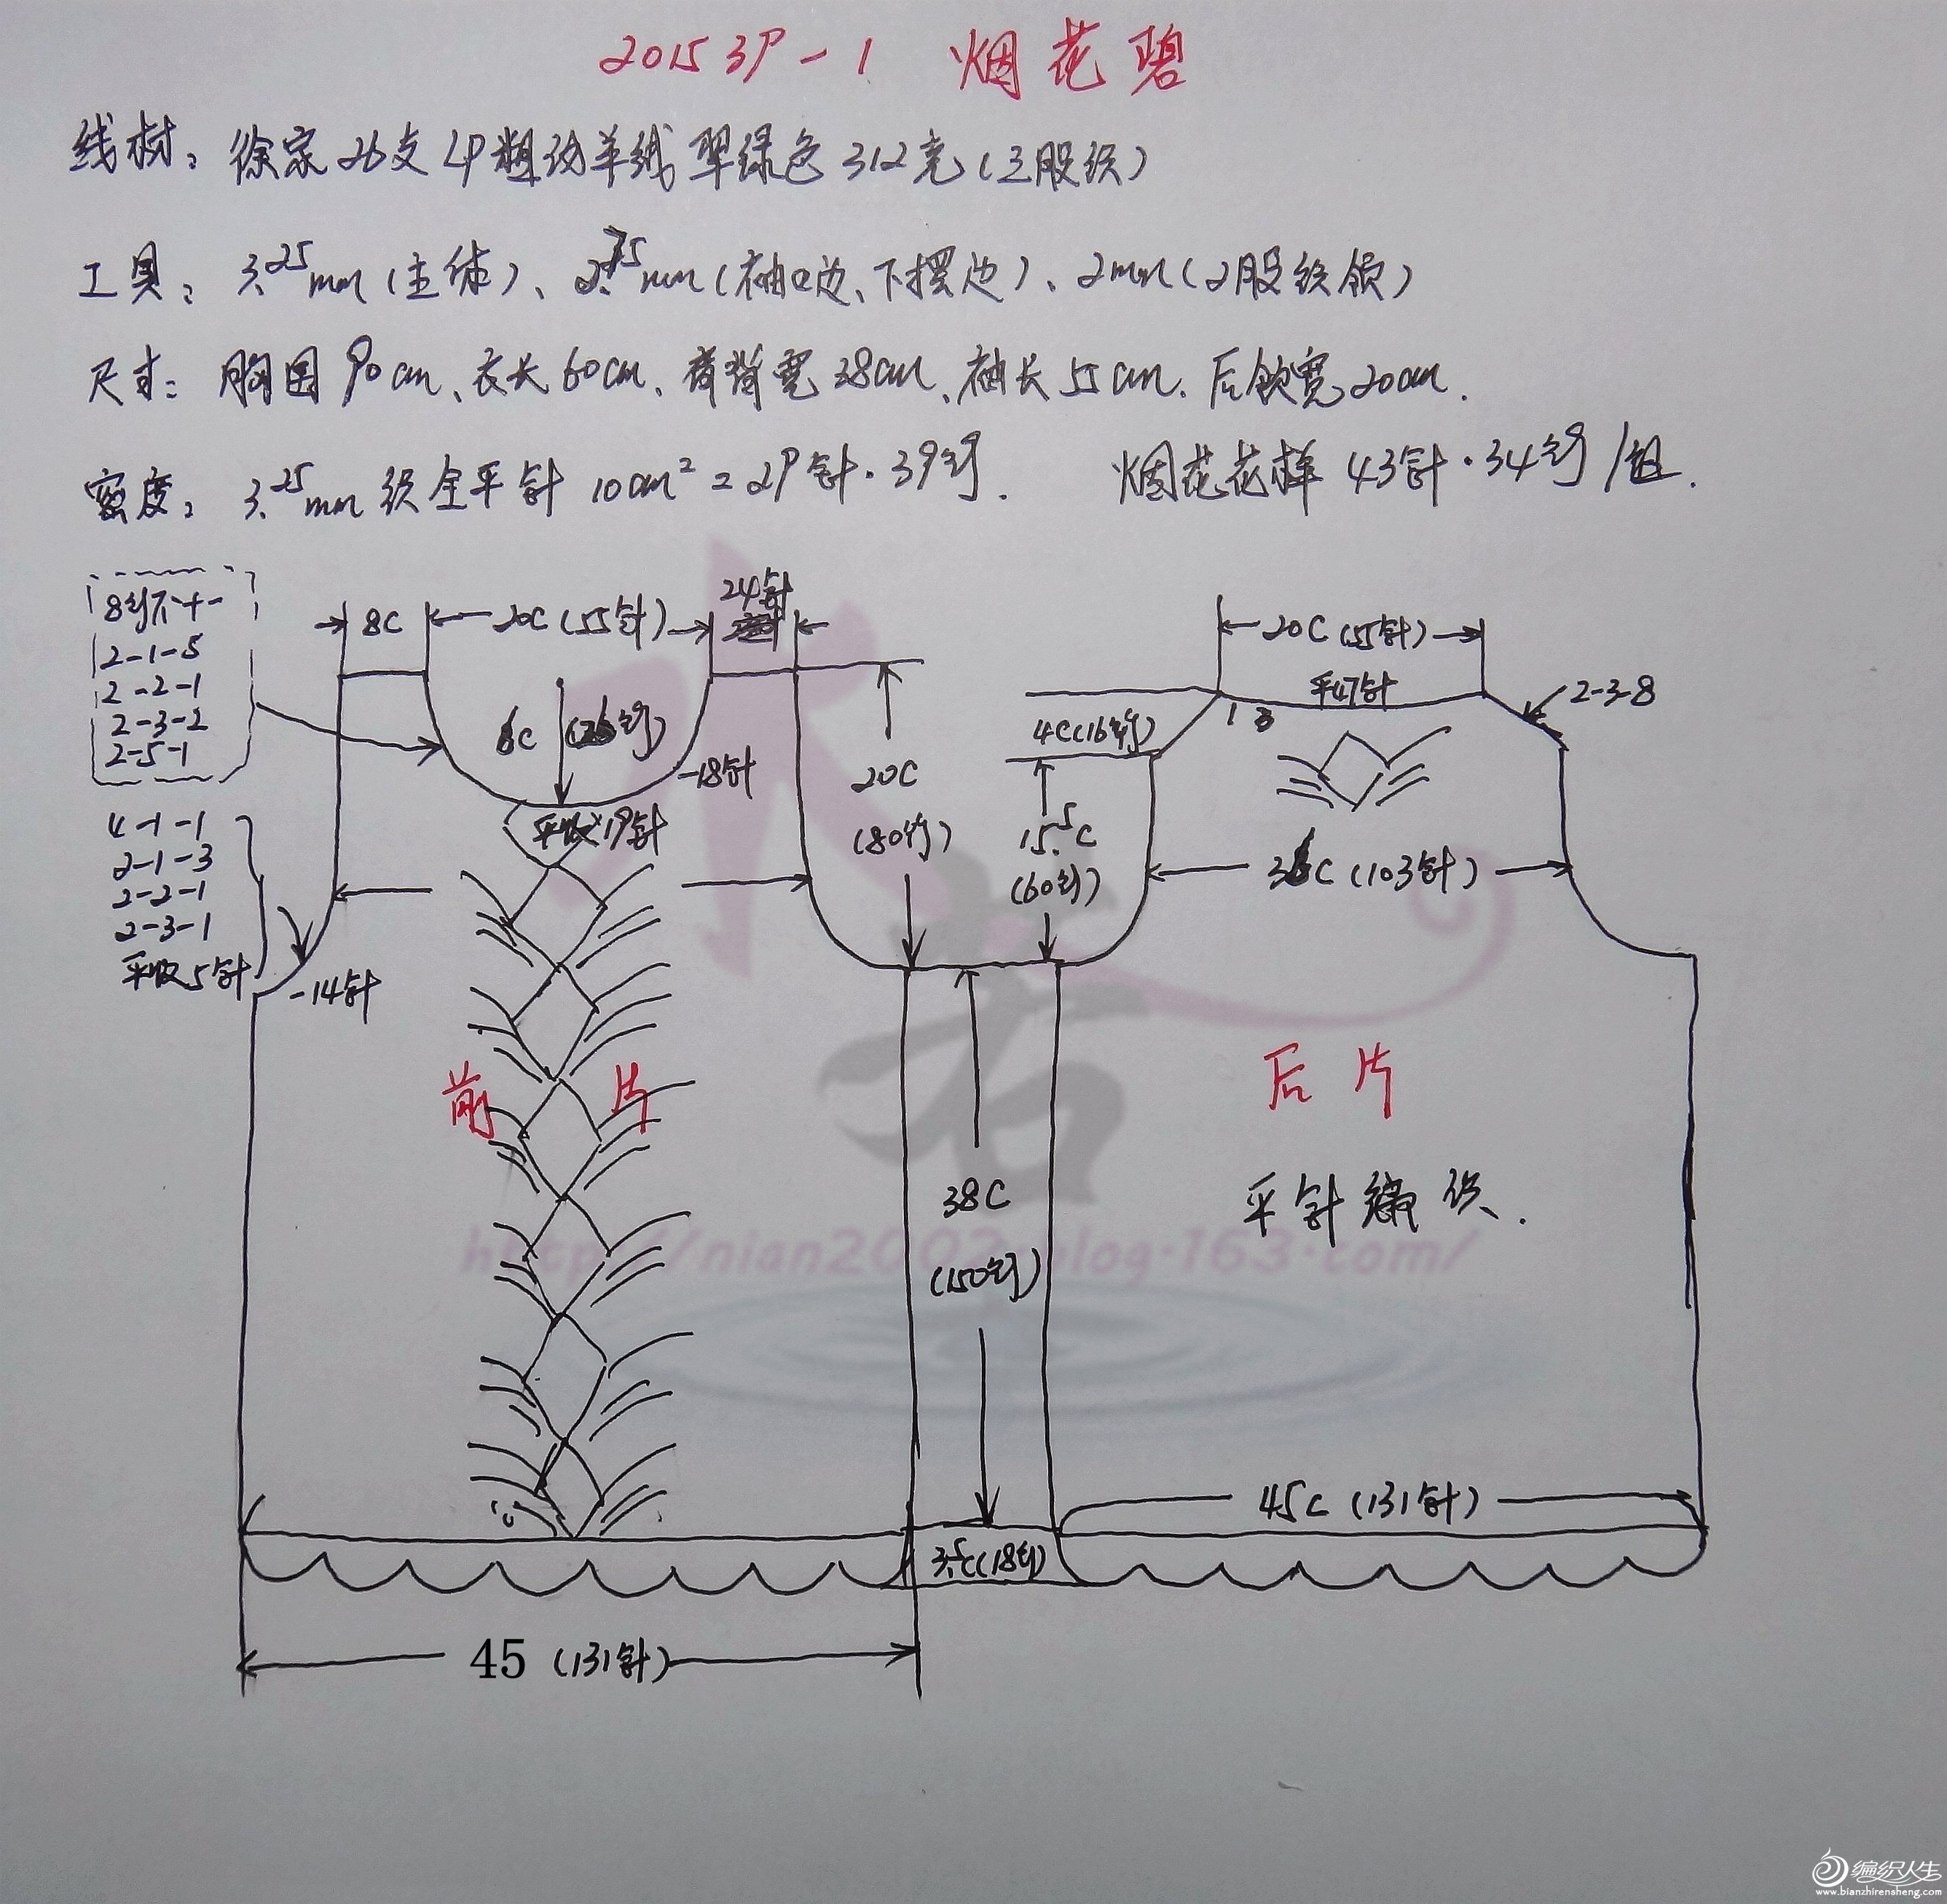 2015 39-1 烟花碧
线材：徐家26支4P粗纺羊绒 翠绿色312克(三股织)
工具：3.25mm(主体)、2.75mm(袖口边、下摆边)、2mm(2股织领)
尺寸：胸围90cm、衣长60cm、肩背宽38cm、袖长55cm. 后领宽20cm.
密度：3.25mm织全平针 10cm²=29针·39行. 烟花花样 43针·34行/组.
8行不+-
2-1-5
2-2-1
2-3-2
2-5-1
8C
20C(55针)
24针
20C(55针)
平47针
2-3-8
1 3
6C (26行)
-18针
平收19针
20C
(80行)
4C(16行)
15.5C
(60行)
36C(103针)
4-1-1
2-1-3
2-2-1
2-3-1
平收5针
-14针
前片
后片
38C
(150行)
平针编织.
http://nian2002.blog.163.com/
45C(131针)
3.5C(18行)
45 (131针)
编织人生
www.bianzhirensheng.com